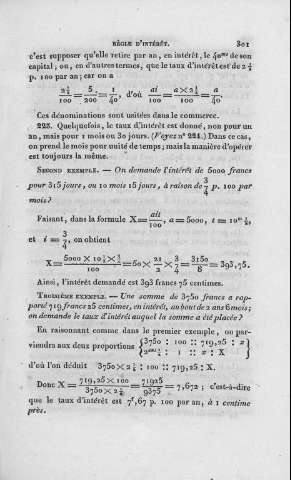 RÈGLE D'INTÉRÊT. 301
c'est supposer qu'elle retire par an, en intérêt, le 40me de son
capital; ou, en d'autres termes, que le taux d'intérêt est de 2 ½
p. 100 par an; car on a
2½/100 = 5/200 = 1/40, d'où ai/100 = a×2½/100 = a/40.
Ces dénominations sont usitées dans le commerce.
223. Quelquefois, le taux d'intérêt est donné, non pour un
an, mais pour 1 mois ou 30 jours. (Voyez n° 221.) Dans ce cas,
on prend le mois pour unité de temps; mais la manière d'opérer
est toujours la même.
SECOND EXEMPLE. — On demande l'intérêt de 5000 francs
pour 315 jours, ou 10 mois 15 jours, à raison de 3/4 p. 100 par
mois?
Faisant, dans la formule X = ait/100, a = 5000, t = 10m ½,
et i = 3/4, on obtient
X = 5000 × 10½ × ¾/100 = 50 × 21/2 × 3/4 = 3150/8 = 393,75.
Ainsi, l'intérêt demandé est 393 francs 75 centimes.
TROISIÈME EXEMPLE. — Une somme de 3750 francs a rap-
porté 719 francs 25 centimes, en intérêt, au bout de 2 ans 6 mois;
on demande le taux d'intérêt auquel la somme a été placée?
En raisonnant comme dans le premier exemple, on par-
viendra aux deux proportions { 3750 : 100 :: 719,25 : x }
{ 2ans ½ : 1 :: x : X }
d'où l'on déduit 3750 × 2½ : 100 :: 719,25 : X.
Donc X = 719,25 × 100/3750 × 2½ = 71925/9375 = 7,672; c'est-à-dire
que le taux d'intérêt est 7f,67 p. 100 par an, à 1 centime
près.